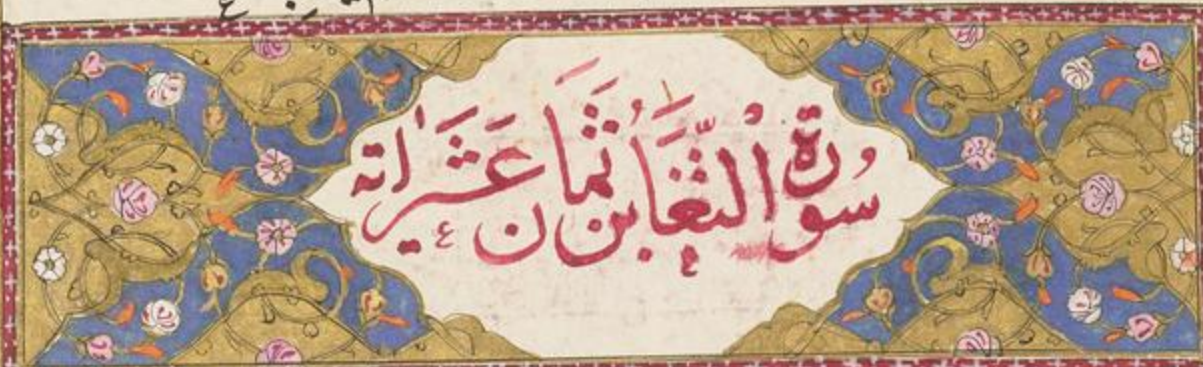 سُورَةُ التَّغَابُنِ ثَمَانَ عَشَرَ اٰية